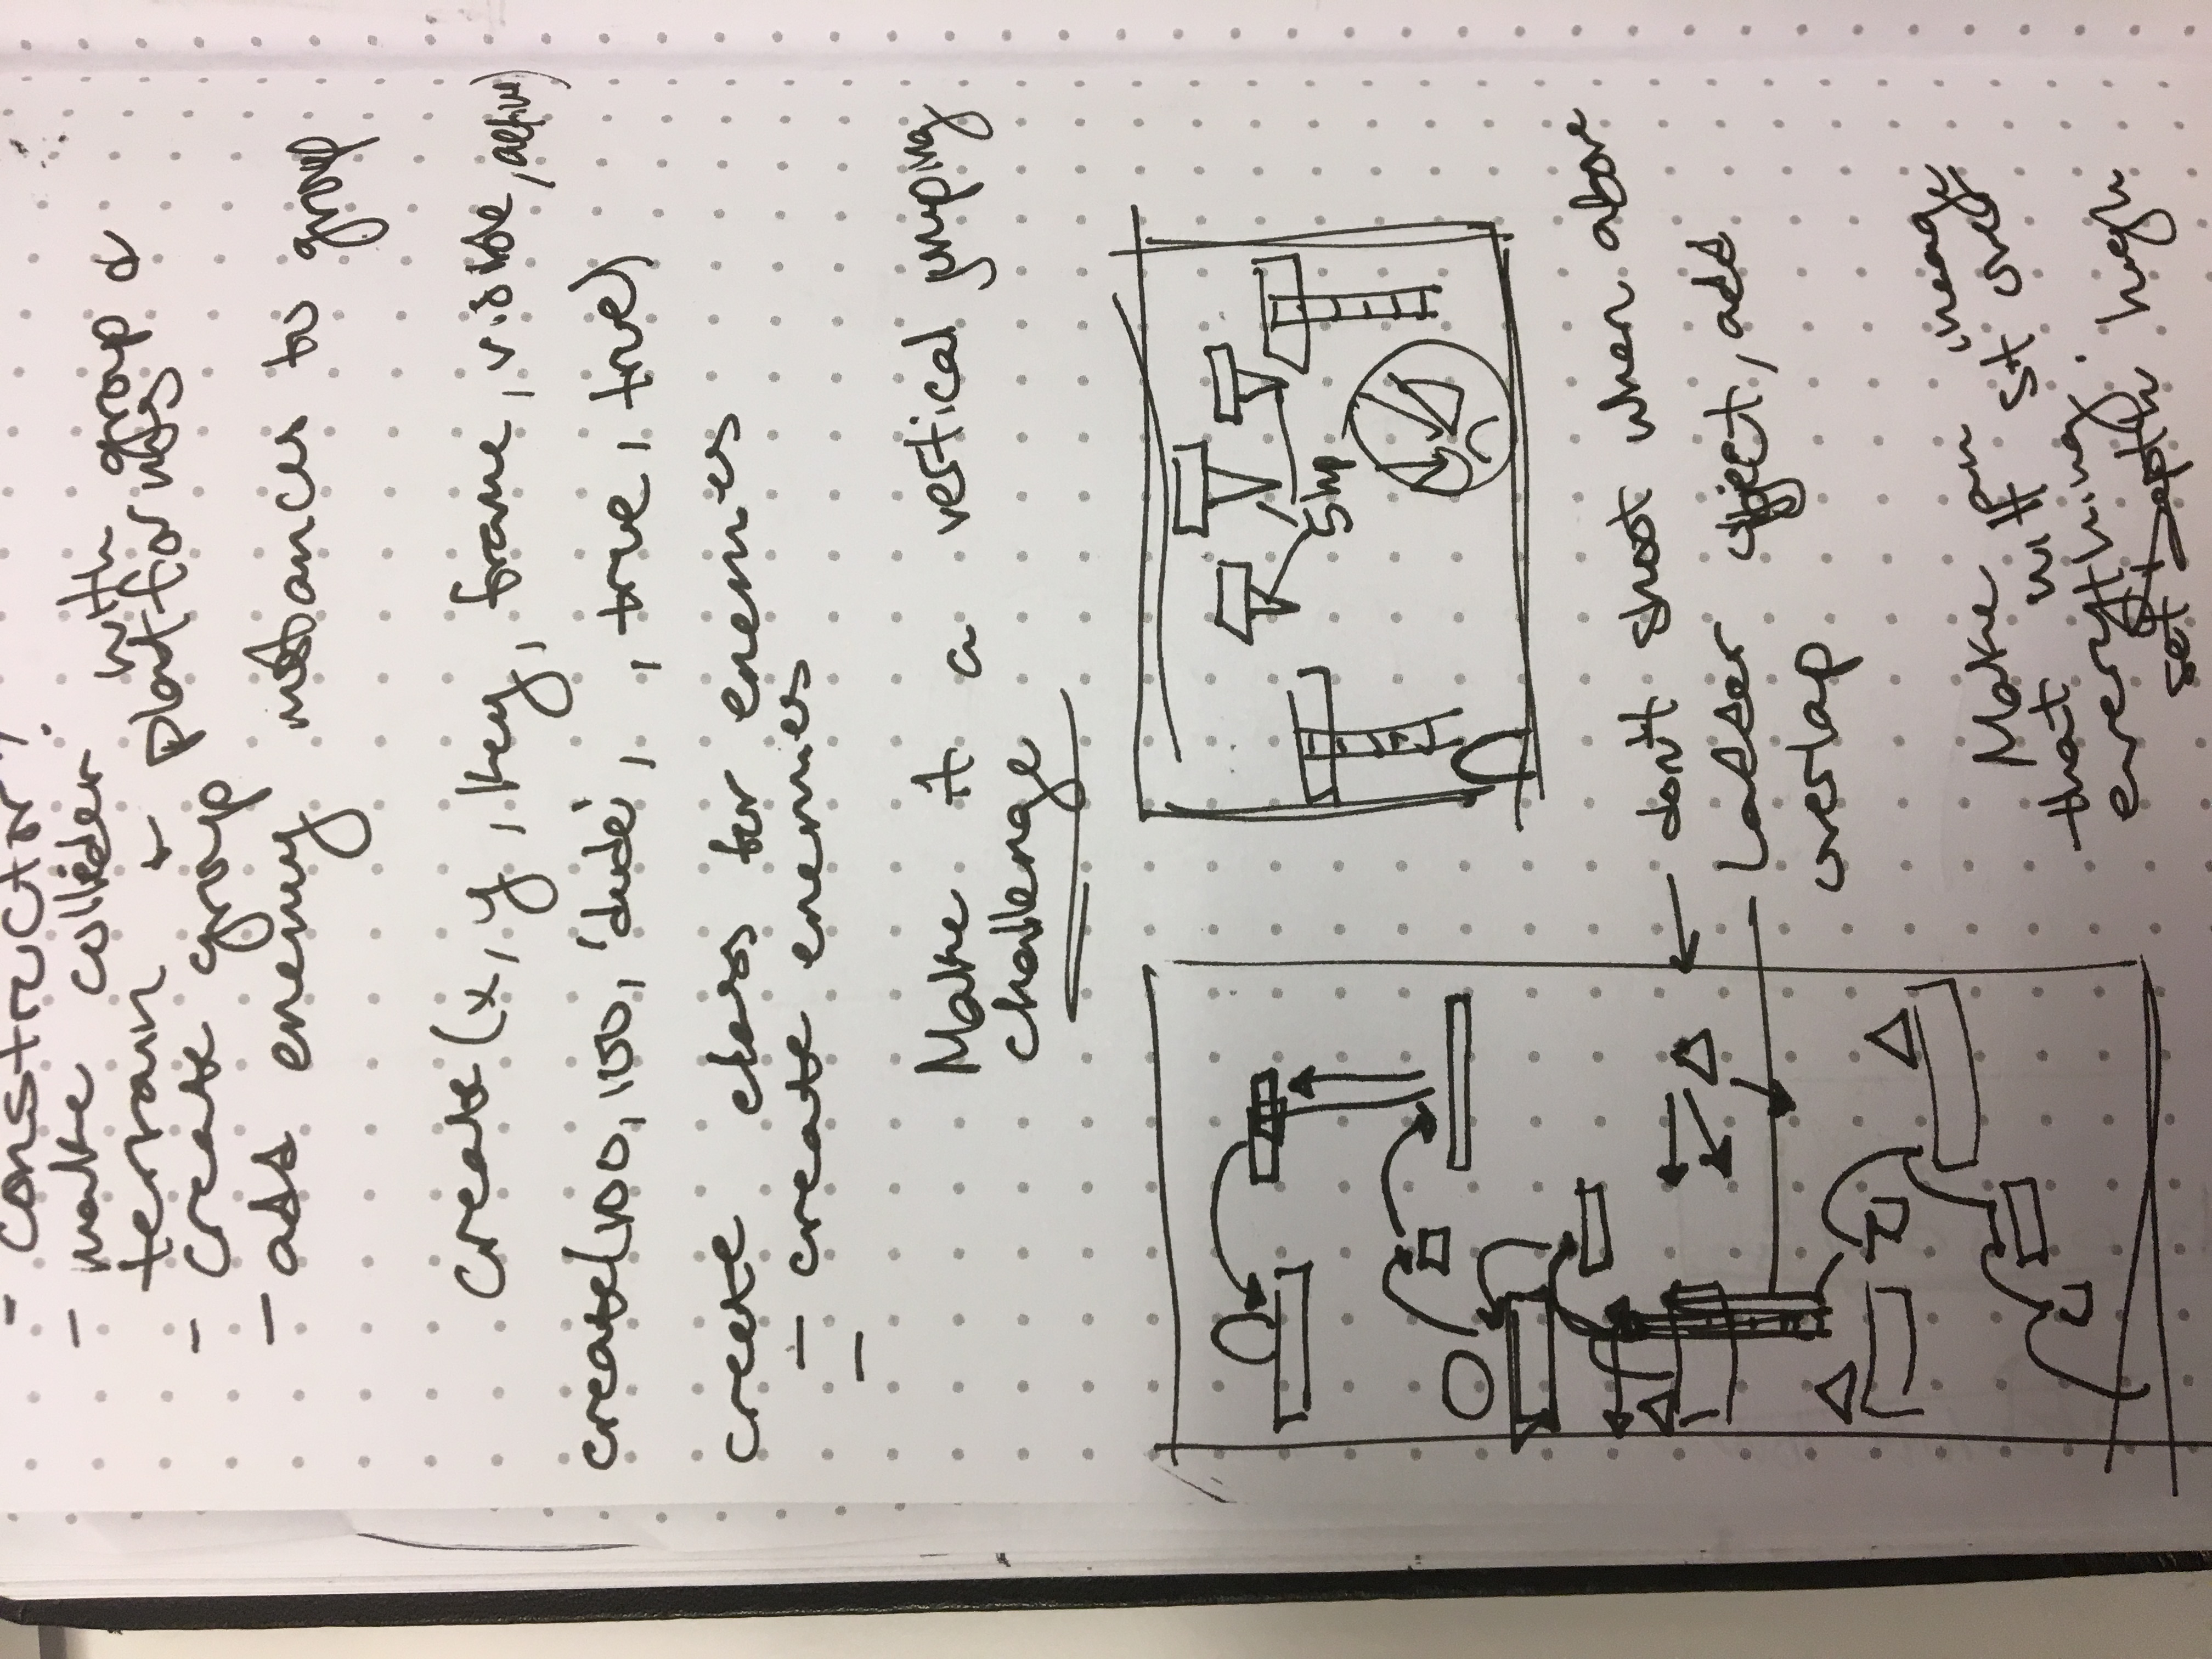 - constructor?
- make collider with group &
terrain & platforms
- create group
- add enemy instances to group
create(x, y, key, frame, visible, active)
create(100, 100, 'dude', , true, true)
create class for enemies
- create enemies
-
Make it a vertical jumping
challenge
5 hp
don't shoot when above
Ladder object, add
overlap
Make an image
that will sit over
everything.
set Depth high